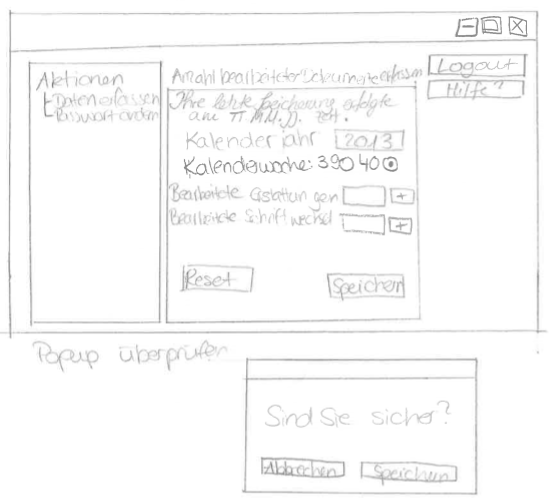 Logout
Hilfe?
Aktionen
Daten erfassen
Passwort ändern
Anzahl bearbeiteter Dokumente erfassen
Ihre letzte Speicherung erfolgte
am TT.MM.JJ.
Kalenderjahr 2013
Kalenderwoche: 39 40
Bearbeitete Gestattungen +
Bearbeitete Schriftwechsel +
Reset
Speichern
Popup überprüfen
Sind Sie sicher?
Abbrechen
Speichern